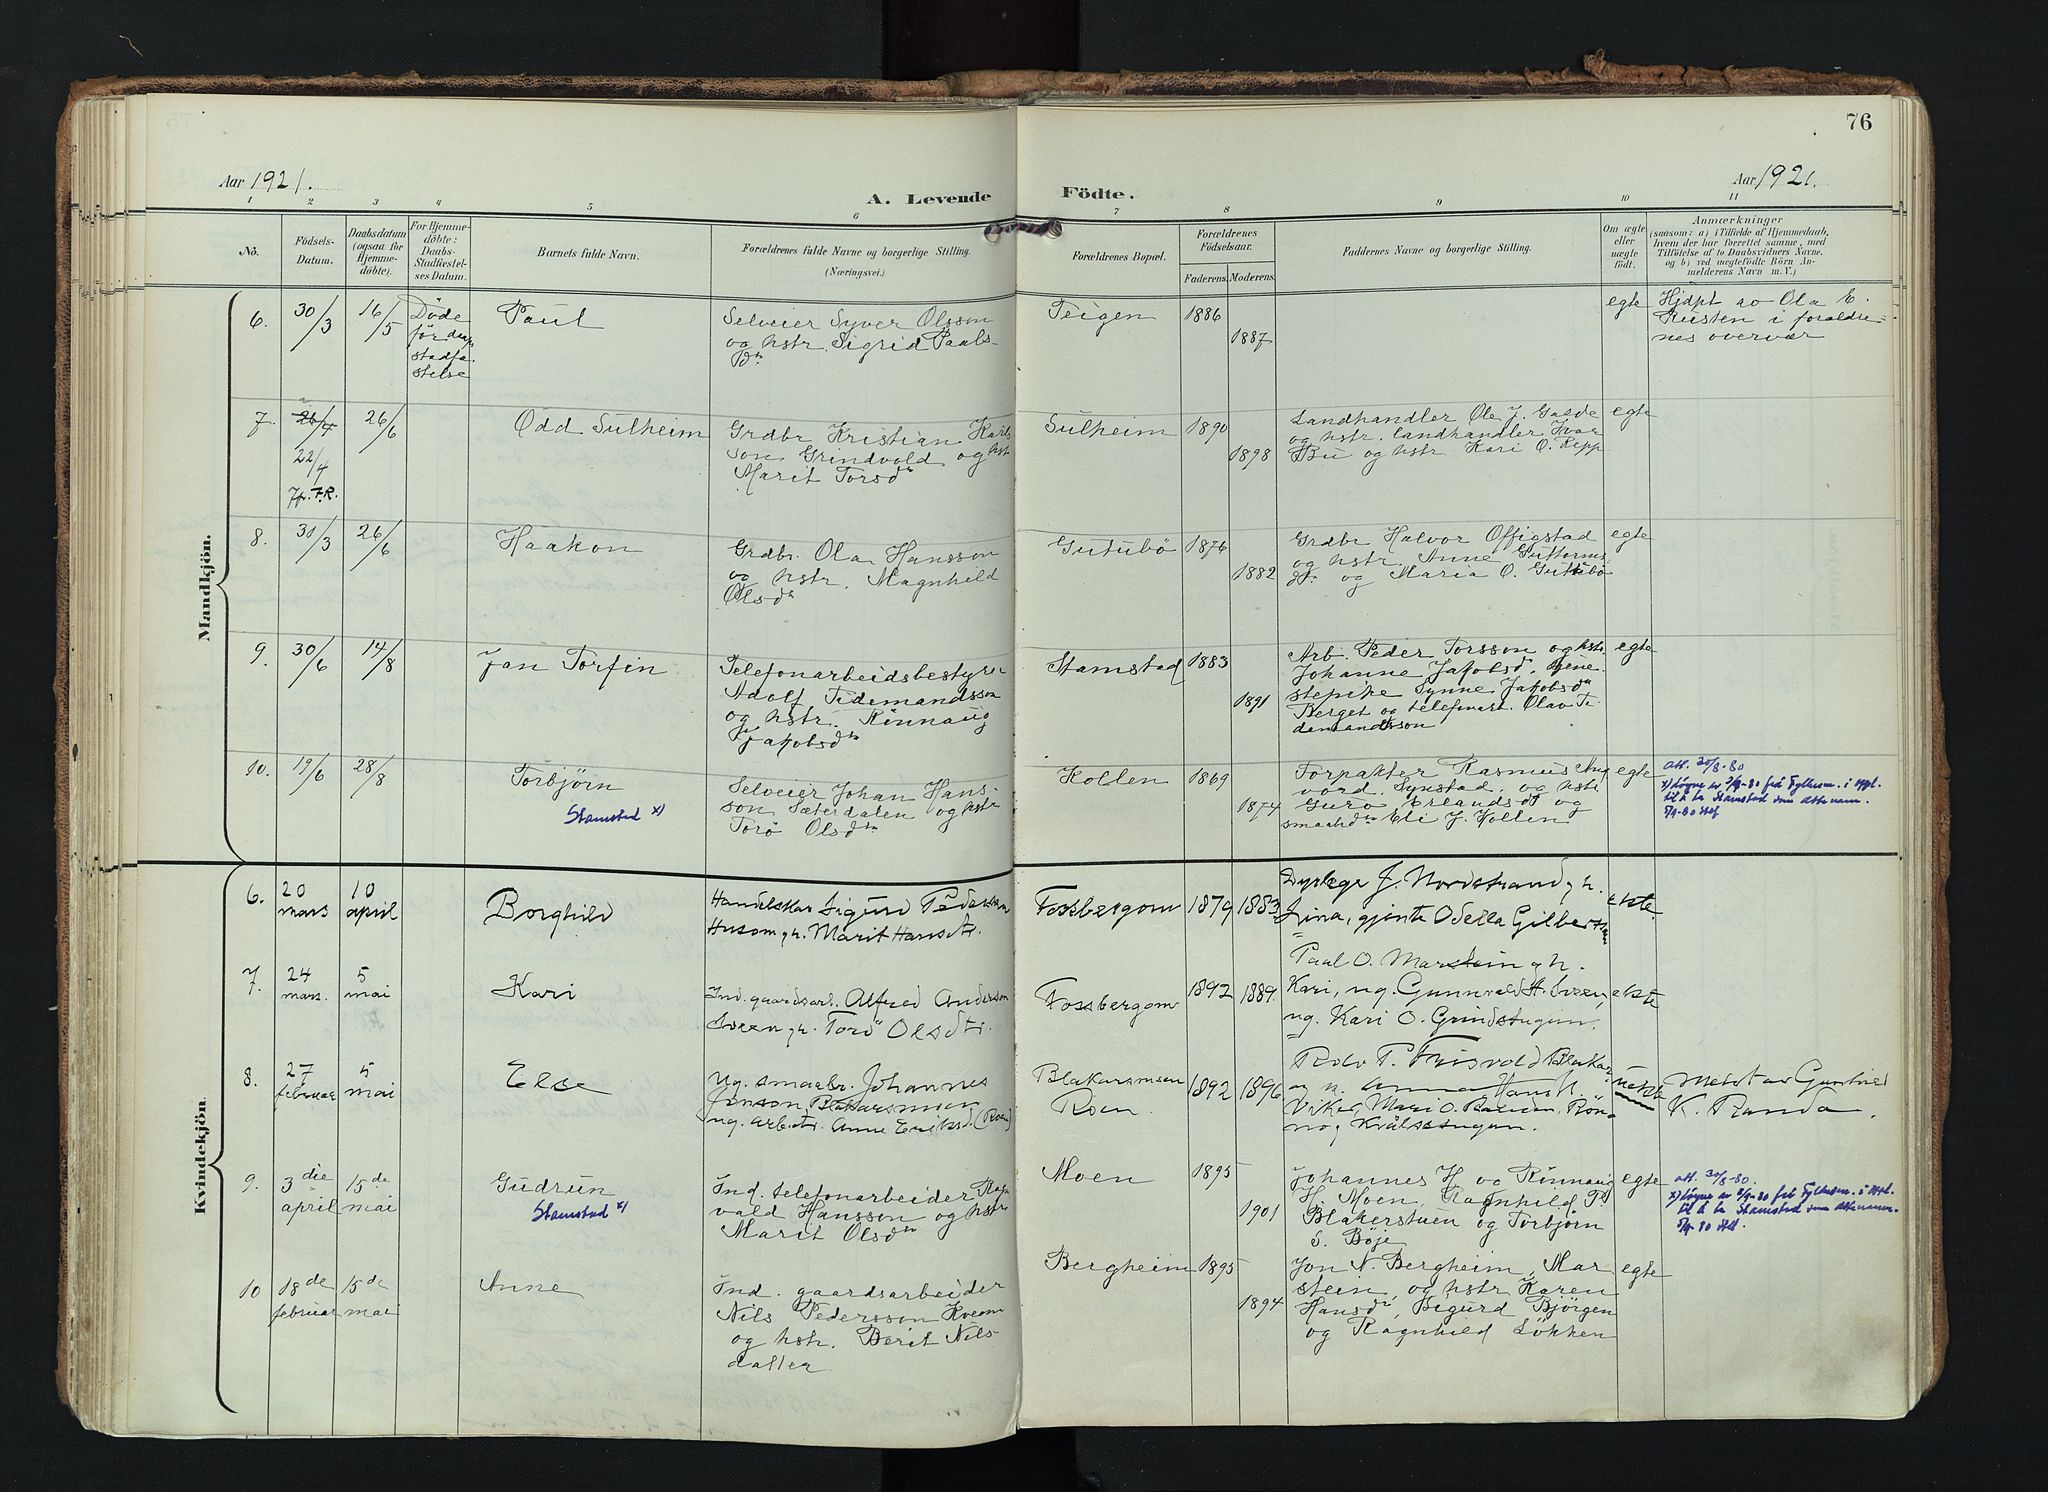 76
Aar 1921.
A. Levende
Födte.
Aar 1921.
1 2 3 4 5 6 7 8 9 10 11
No.
Födsels-
Datum.
Daabsdatum
(ogsaa for
Hjemme-
döbte).
For Hjemme-
döbte:
Daabs-
Stadfæstel-
ses Datum.
Barnets fulde Navn.
Forældrenes fulde Navne og borgerlige Stilling.
(Næringsvei.)
Forældrenes Bopæl.
Forældrenes
Födselsaar.
Faderens. Moderens.
Faddernes Navne og borgerlige Stilling.
Om ægte
eller
uægte
födt.
Anmærkninger
(saasom: a) i Tilfælde af Hjemmedaab,
hvem der har forrettet samme, med
Tilföielse af to Daabsvidners Navne.
og b) ved uægtefödte Börn An-
melderens Navn m. V.)
Mandkjön.
6. 30/3 16/5
Døde
før
stadfæ
stelse
Paul
Selveier Syver Olsson
og hstr. Sigrid Paals-
dtr
Teigen
1886
1887
egte
Hjdpt av Ola E.
Kusten i forældre-
nes overvær
7. 26/4 26/6
22/4
Odd Sulheim
Grdbr Kristian Karls
son Grindvold og hstr
Marit Torsdtr
Sulheim
1890
1898
Landhandler Ole J. Gaade
og hstr. landhandler Ivar
Bu og hstr Kari O. Repp
egte
8. 30/3 26/6
Haakon
Grdbr. Ola Hansson
og hstr. Magnhild
Olsdtr
Gutubö
1876
1882
Grdbr Halvor Offigstad
og hstr. Anne Guttorms
dtr. og Maria O. Gutubö
egte
9. 30/6 14/8
Jan Torfin
Telefonarbeidsbestyrer
Adolf Tidemandsson
og hstr. Rönnaug
Jakobsdtr
Stamstad
1883
1891
Arb. Peder Torsson og hstr.
Johanne Jakobsd. tjene-
stepike Synne Jakobsdtr
Berget og telefonarb. Olav Ti-
demandsson
egte
10. 19/6 28/8
Torbjørn
Stamstad x)
Selveier Johan Hans-
son Sæterdalen og hstr
Torö Olsdtr
Kollen
1869
1874
Forpakter Rasmus
vord. Synstad. og hstr
Guro Erlandsdt og
smaabr. Eli J. Kollen
egte
att. 20/8-80
til å ta Stamstad som etternavn.
Kvindekjön.
6. 20 mars 10 april
Borghild
Handelskar Sigurd Pedersson
Husom g h. Marit Hansdtr.
Fossbergom
1879 1883
Dyrlæge J. Nordstrand g h.
Lina, gjente Odella Gilbertson
Paal O. Marstein g h.
ekte
7. 24 mars. 5 mai
Kari
Ind. gaardsarb. Alfred Anderson
Sveen g h. Torö Olsdtr.
Fossbergom
1892 1889.
Kari, ug. Gunvald H. Sveen,
ug. Kari O. Grindstugum.
ekte
8. 27 februar 5 mai
Else
Ug. smaabr. Johannes
Jonson Blakarsmoen
ug. arbeidr. Anne Eriksd. (Roen)
Blakarsmoen
Roen.
1892 1896
Rolv P. Frisvold Blakar
og h. Anna Hansdtr.
Vike, Mari O. Randen, Rön-
nog Kvålsstugun.
uekte
Meldt av Gunhild
K. Randa.
9. 3die april 15de mai
Gudrun
Stamstad x)
Ind. telefonarbeider Rag
vald Hansson og hstr
Marit Olsdtr
Moen
1895
1901
Johannes H og Rönnaug
H. Moen, Ragnhild P.
Blakerstuen og Torbjørn
S. Böje
egte
att. 20/8-80.
til å ta Stamstad som etternavn.
10 18de februar 15de mai
Anne
Ind. gaardsarbeider
Nils Pedersson Kvam
og hstr. Berit Nils-
datter
Bergheim
1895
1894
Jon N. Bergheim, Mar
stein, og hstr Karen
Hansdtr, Sigurd Bjørgen
og Ragnhild Løkken
egte